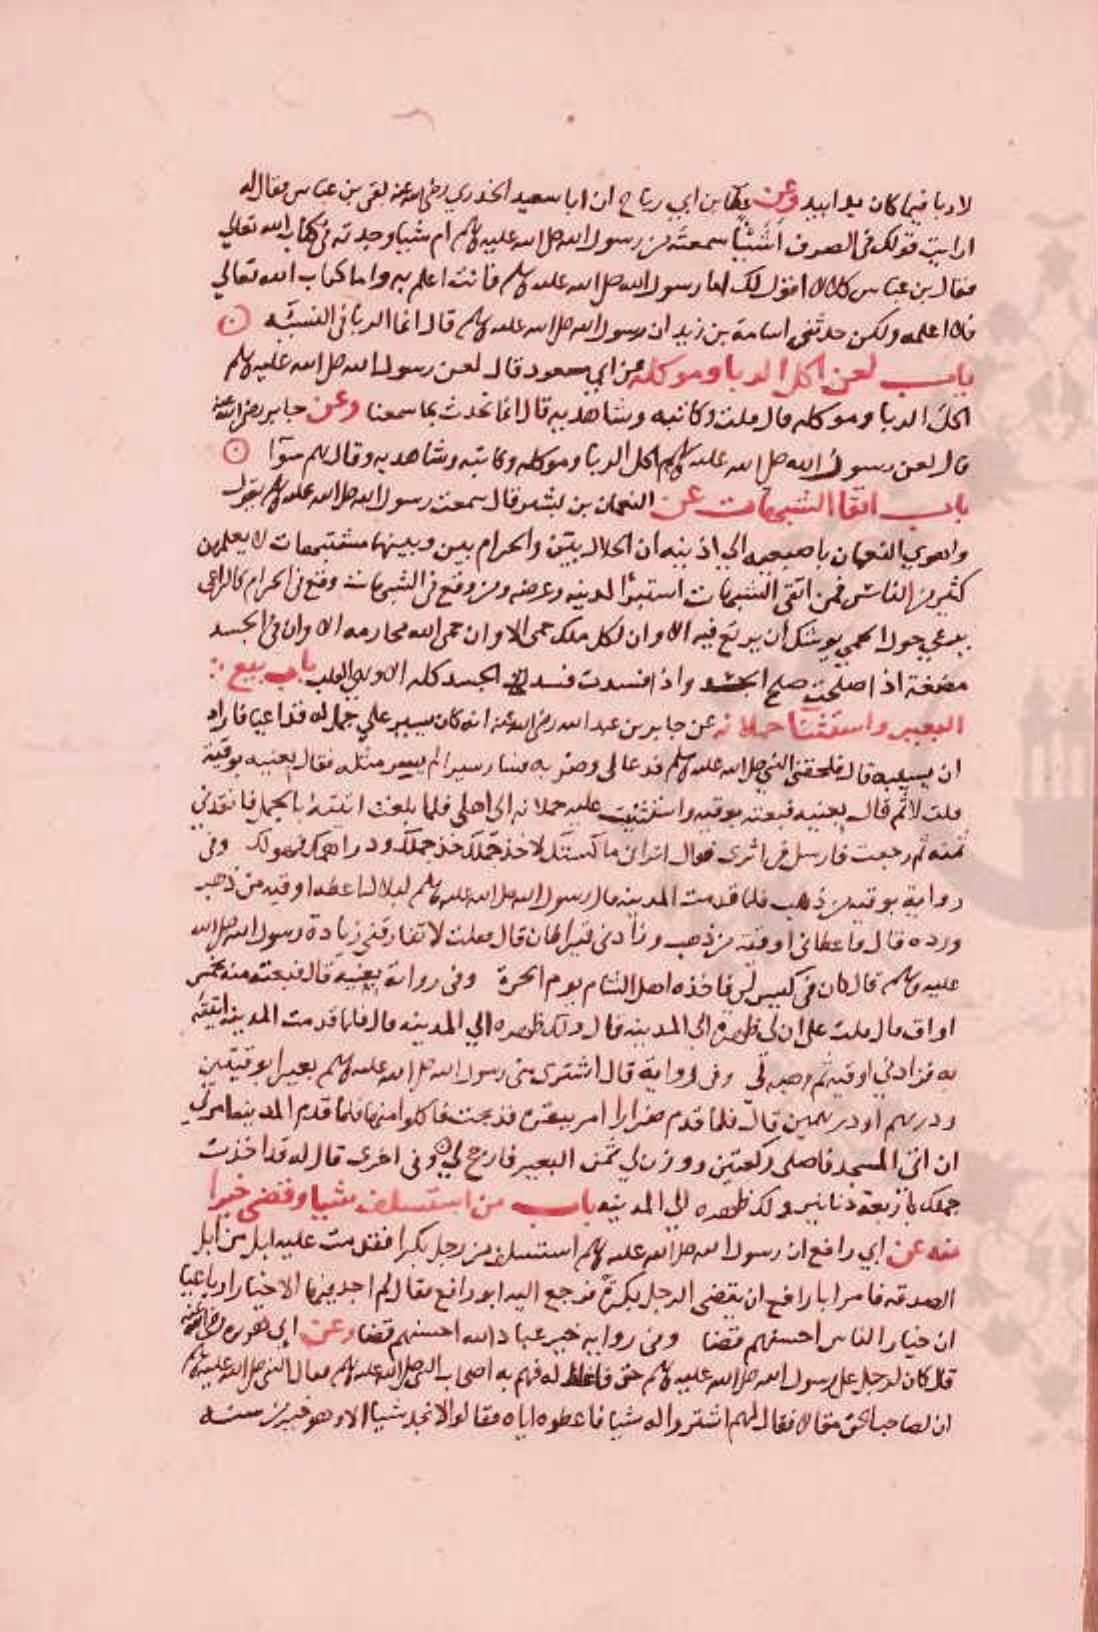 لا ربا فيما كان يدا بيد وعن عطا بن ابي رباح ان ابا سعيد الخدري رضي الله عنه لقى بن عباس فقال له
ارايت قولك في الصرف أشيئا سمعته من رسول الله صلى الله عليه وسلم ام شيا وجدته في كتاب الله تعالي
فقال بن عباس كلا لا اقول لك اما رسول الله صلى الله عليه وسلم فانت اعلم به واما كتاب الله تعالي
فلا اعلمه ولكن حدثني اسامة بن زيد ان رسول الله صلى الله عليه وسلم قال انما الربا في النسيّه
باب لعن اكل الربا وموكله عن ابي مسعود قال لعن رسول الله صلى الله عليه وسلم
اكل الربا وموكله قال قلت وكاتبه وشاهديه قال انما نحدث بما سمعنا وعن جابر رضي الله عنه
قال لعن رسول الله صلى الله عليه وسلم اكل الربا وموكله وكاتبه وشاهديه وقال هم سوآ
باب اتقا الشبهات عن النعمان بن بشير قال سمعت رسول الله صلى الله عليه وسلم يقول
واهوي النعمان باصبعيه الي اذنيه ان الحلال بيّن والحرام بين وبينهما مشتبهات لا يعلمهن
كثير من الناس فمن اتقى الشبهات استبرأ لدينه وعرضه ومن وقع في الشبهات وقع في الحرام كالراعي
يرعي حول الحمي يوشك ان يرتع فيه الا وان لكل ملك حمى الا وان حمى الله محارمه الا وان في الجسد
مضغة اذا صلحت صلح الجسد واذا فسدت فسد الجسد كله الا وهي القلب باب بيع
البعير واستثنا حملانه عن جابر بن عبد الله رضي الله عنه انه كان يسير علي جمل له قد اعيا فاراد
ان يسيبه قال فلحقني النبي صلى الله عليه وسلم فدعا لي وضربه فسار سيرا لم يسر مثله فقال بعنيه بوقية
قلت لا ثم قال بعنيه فبعته بوقيه واستثنيت عليه حملانه الى اهلي فلما بلغت اتيته بالجمل فانقدني
ثمنه ثم رجعت فارسل في اثري فقال اتراني ماكستك لاخذ جملك خذ جملك ودراهمك فهو لك وفي
رواية بوقيه من ذهب فلما قدمت المدينه قال رسول الله صلى الله عليه وسلم لبلال اعطه اوقيه من ذهب
وزده قال فاعطاني اوقية من ذهب وزادني قيراطا قال فقلت لا تفارقني زيادة رسول الله صلى الله
عليه وسلم قال كان في كيس لي فاخذه اهل الشام يوم الحرة وفي رواية بعنيه قال فبعته منه بخمس
اواق قال قلت على ان لي ظهره الي المدينه قال ولك ظهره الي المدينه قال فلما قدمت المدينه اتيته
به فزادني اوقيه ثم وهبه لي وفي رواية قال اشترى مني رسول الله صلى الله عليه وسلم بعيرا بوقيتين
ودرهم او درهمين قال فلما قدم صرارا امر ببقرة فذبحت فاكلوا منها فلما قدم المدينه امرني
ان اتي المسجد فاصلى ركعتين ووزن لي ثمن البعير فارجح لي وفي اخرى قال له قد اخذت
جملك باربعة دنانير ولك ظهره الي المدينه باب من استسلف شيا وقضى خيرا
منه عن ابي رافع ان رسول الله صلى الله عليه وسلم استسلف من رجل بكرا فقدمت عليه ابل من ابل
الصدقه فامر ابا رافع ان يقضى الرجل بكره فرجع اليه ابو رافع فقال لم اجد فيها الا خيارا رباعيا
ان خيار الناس احسنهم قضا وفي روايه خير عباد الله احسنهم قضا وعن ابي هريره رضي الله عنه
قال كان لرجل على رسول الله صلى الله عليه وسلم حق فاغلظ له فهم به اصحاب النبي صلى الله عليه وسلم فقال النبي صلى الله عليه وسلم
ان لصاحب الحق مقالا فقال لهم اشتروا له شيا فاعطوه اياه فقالوا لا نجد شيا الا وهو خير من سنه